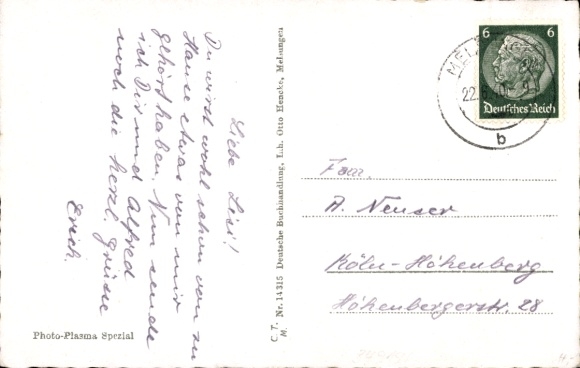 Liebe Lisi!
Du wirst wohl schon von zu
Hause etwas von mir
gehört haben. Nun sende
ich Dir und Alfred
noch die herzl. Grüsse
Erich.
Photo-Plasma Spezial
C. T. Nr. 14315 Deutsche Buchhandlung, Inh. Otto Hencke, Melsungen
M.
6 6
Deutsches Reich
22.
b
Fam.
A. Neuser
Köln-Höhenberg
Höhenbergerstr. 28